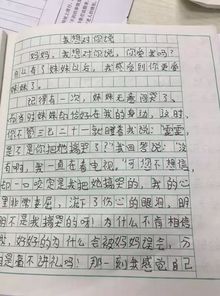 我想对你说
妈妈，我想对你说，你爱我吗？
自从有了妹妹以后，我感受到你更爱
妹妹了。
记得有一次，妹妹无意间哭了，
而当时妹妹的恰好在我的身边，这时，
你不管三七二十一就瞪着我说：“
是不是你把她搞哭了？”我回答说：“没
有啊，我一直在看电视。”可你不相信，
却一口咬定是我把她搞哭的，我的心
里非常难过，流下了伤心的眼泪，明
明不是我搞哭的呀！为什么不肯相信
我，好好的为什么会被妈妈误会，分
白是毫不讲礼吗！那一刻我感觉自己